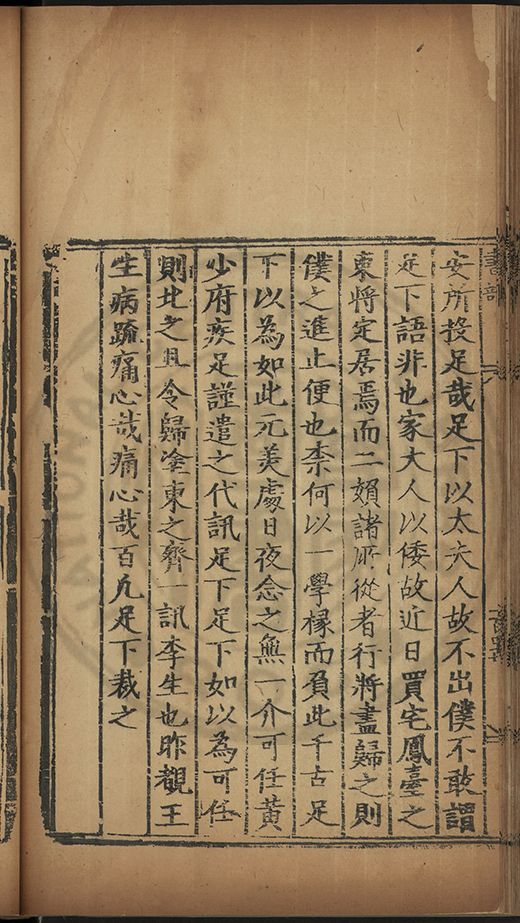 安所投足哉足下以太夫人故不出僕不敢謂
足下語非也家大人以倭故近日買宅鳳臺之
東將定居焉而二嬪諸所從者行將盡歸之則
僕之進止便也柰何以一學椽而負此千古足
下以為如此元美處日夜念之無一介可任黃
少府疾足謹遣之代訊足下足下如以為可任
則北之且令歸塗東之齊一訊李生也昨覩王
生病疏痛心哉痛心哉百凡足下裁之
書部